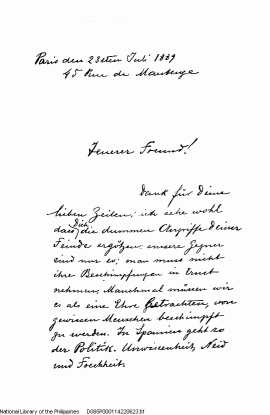 Paris den 23sten Juli 1889
45 Rue de Maubeuge
Teuerer Freund!
Dank für Deine
lieben Zeilen; ich sehe wohl
dass Dich die dummen Angriffe Deiner
Feinde ergötzen; unsere Gegner
sind nur so; man muss nicht
ihre Beschimpfungen in Ernst
nehmen; Manchmal müssen wir
es als eine Ehre betrachten, von
gewissen Menschen beschimpft
zu werden. In Spanien geht so
der Politik. Unwissenheit, Neid
und Frechheit.
National Library of the Philippines